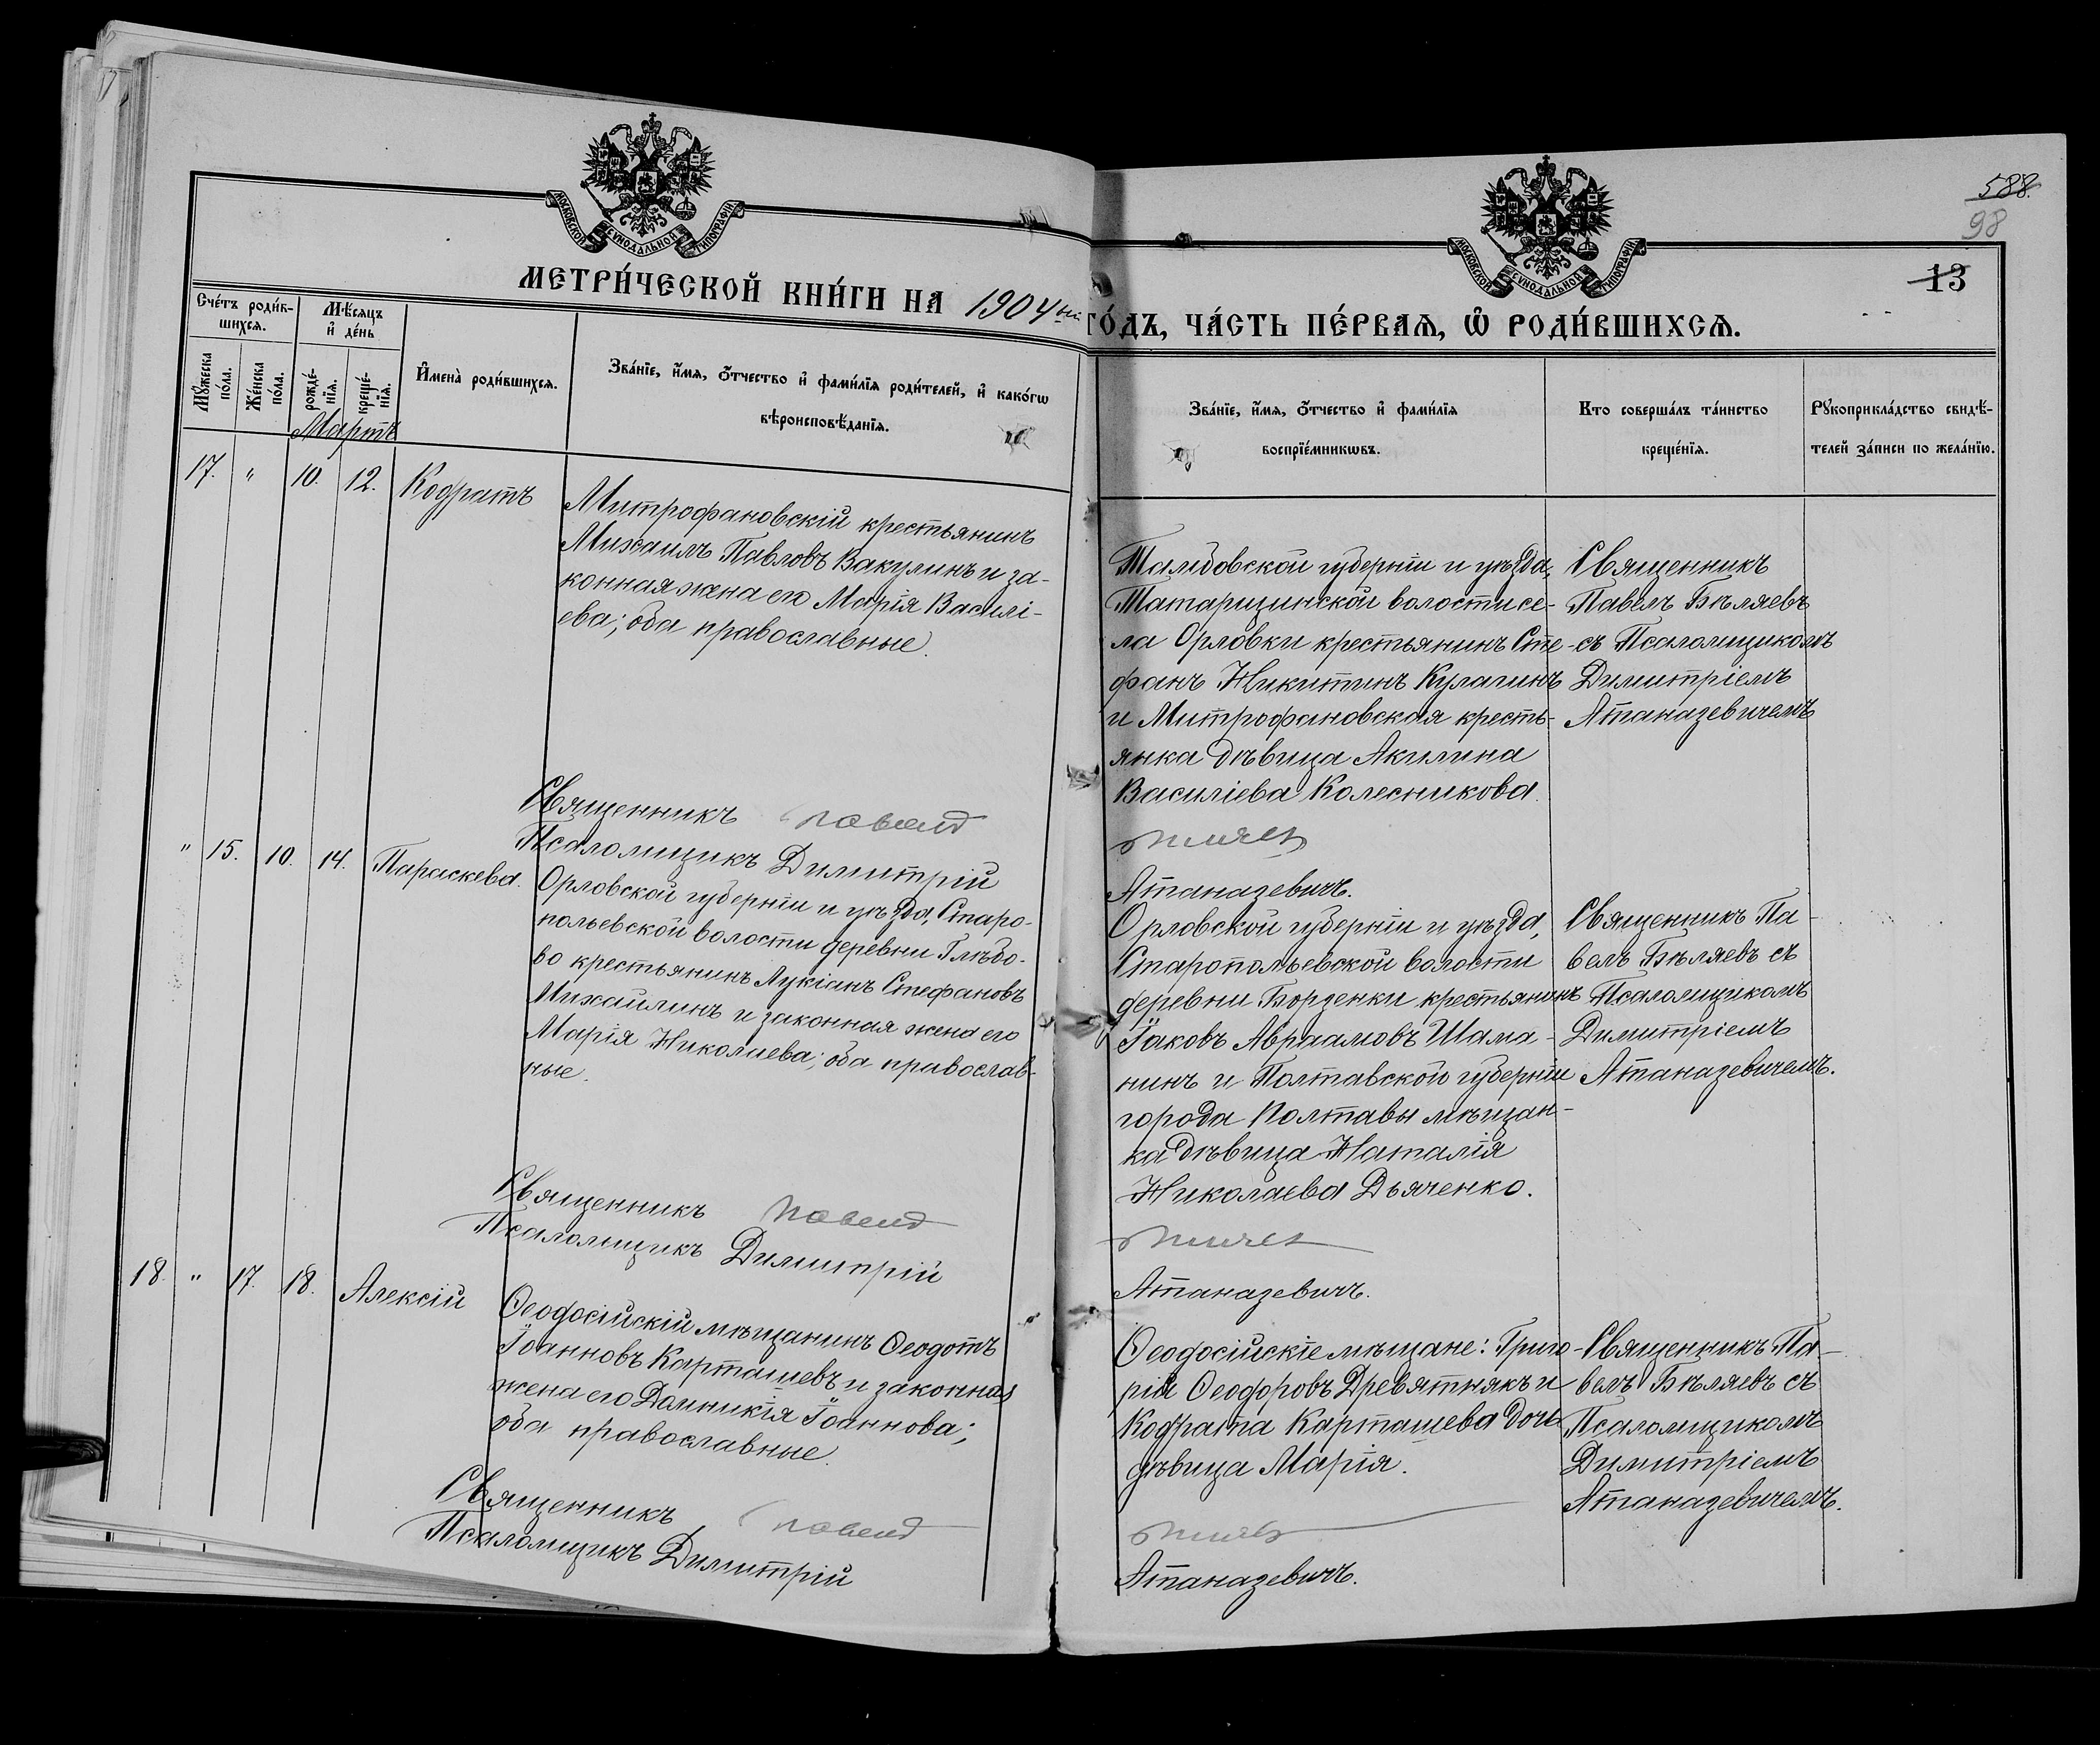 МОСКОВСКОЙ СѴНОДАЛЬНОЙ ТИПОГРАФІИ
МОСКОВСКОЙ СѴНОДАЛЬНОЙ ТИПОГРАФІИ
588.
98
13
МЕТРИ́ЧЕСКОЙ КНИ́ГИ НА 1904ый ГО́ДЪ, ЧА́СТЬ ПЕ́РВАѦ, Ѡ РОДИ́ВШИХСѦ.
Сче́тъ роди́в-
шихся.
Мꙋ́жеска по́ла.
Же́нска по́ла.
Мѣ́сяцъ и҆ де́нь
рожде́-
нїя.
креще́-
нїя.
И҆мена̀ роди́вшихся.
Зва́нїе, и҆́мя, ѻ҆́тчество и҆ фами́лїя роди́телей, и҆ како́гѡ
вѣроисповѣ́данїя.
Зва́нїе, и҆́мя, ѻ҆́тчество и҆ фами́лїя
воспрїе́мникѡвъ.
Кто соверша́лъ та́инство
креще́нїя.
Рꙋкоприкла́дство свидѣ́-
телей за́писи по жела́нїю.
Мартъ
17. " 10. 12. Кодратъ
Митрофановскій крестьянинъ
Михаилъ Павловъ Вакулинъ и за-
конная жена его Марія Василі-
ева; оба православные.
Тамбовской губерніи и уѣзда,
Татарщинской волости се-
ла Орловки крестьянинъ Сте-
фанъ Никитинъ Кулагинъ
и Митрофановская кресть-
янка дѣвица Акилина
Василіева Колесникова.
Священникъ
Павелъ Бѣляевъ
съ Псаломщикомъ
Димитріемъ
Атаназевичемъ
Священникъ Павелъ
Псаломщикъ Димитрій
Атаназевичъ.
" 15. 10. 14. Параскева.
Орловской губерніи и уѣзда, Старо-
польевской волости деревни Глѣбо-
во крестьянинъ Лукіанъ Стефановъ
Михайлинъ и законная жена его
Марія Николаева; оба православ-
ные.
Орловской губерніи и уѣзда,
Старопольевской волости
деревни Борзенки крестьянинъ
Іаковъ Авраамовъ Шама-
нинъ и Полтавской губерніи
города Полтавы мѣщан-
ка дѣвица Наталія
Николаева Дьяченко.
Священникъ Па-
велъ Бѣляевъ съ
Псаломщикомъ
Димитріемъ
Атаназевичемъ.
Священникъ Павелъ
Псаломщикъ Димитрій
Атаназевичъ.
18. " 17. 18. Алексій
Ѳеодосійскій мѣщанинъ Ѳеодотъ
Іоанновъ Карташевъ и законная
жена его Домникія Іоаннова;
оба православные.
Ѳеодосійскіе мѣщане: Григо-
рій Ѳеодоровъ Древятнякъ и
Кодрата Карташева дочь
дѣвица Марія.
Священникъ Па-
велъ Бѣляевъ съ
Псаломщикомъ
Димитріемъ
Атаназевичемъ.
Священникъ Павелъ
Псаломщикъ Димитрій
Атаназевичъ.